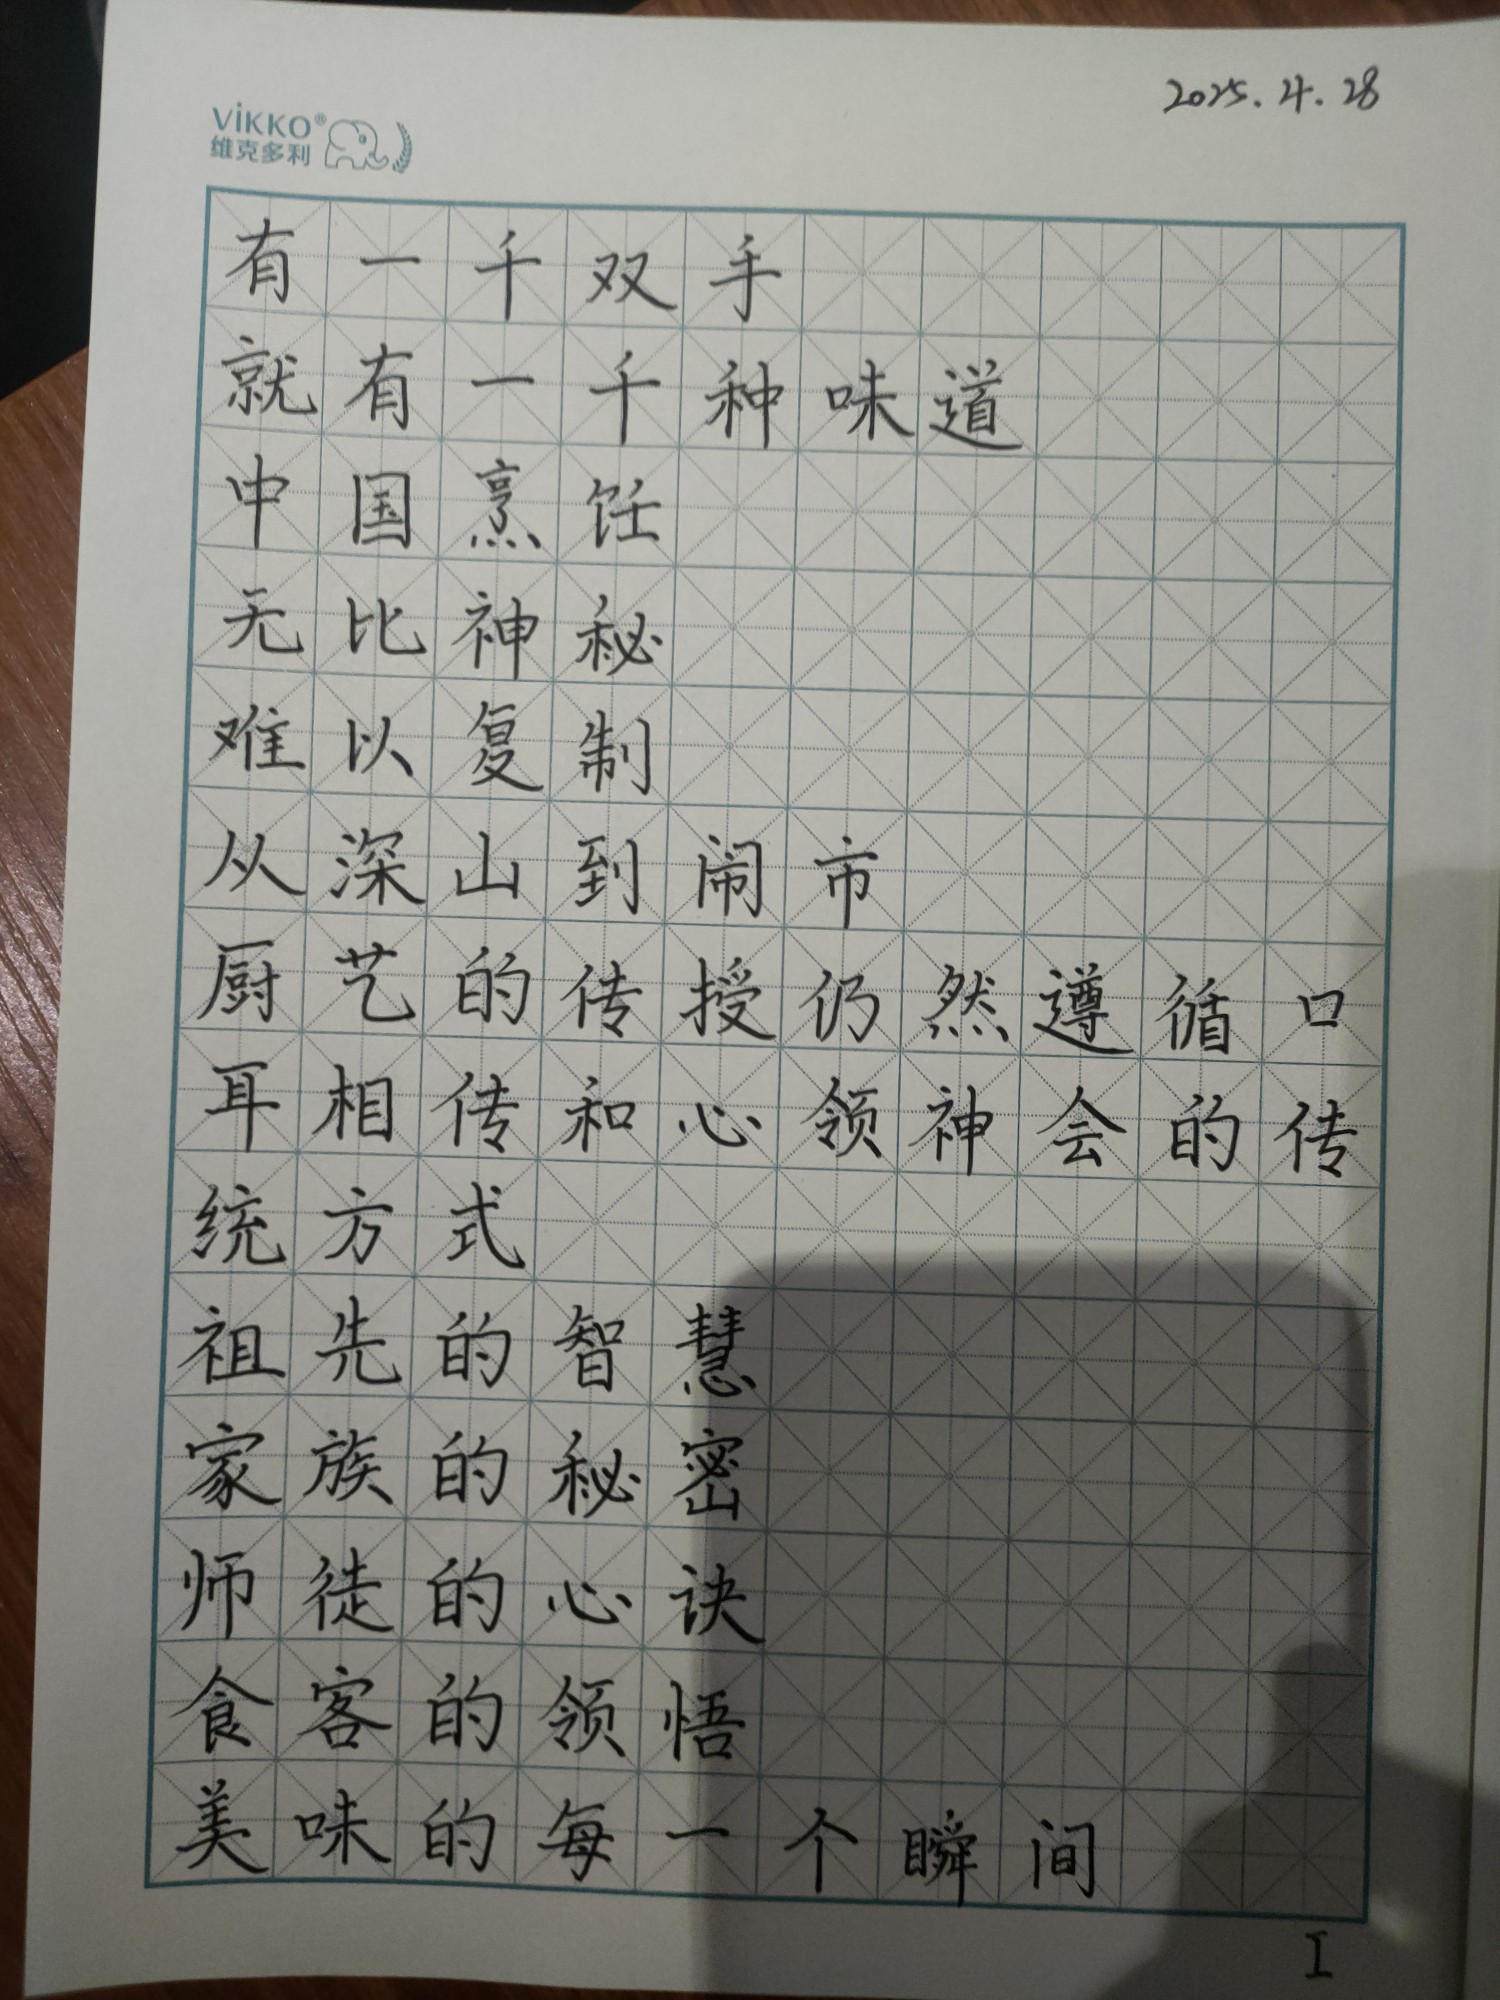 2025.4.28
ViKKO®
维克多利
有一千双手
就有一千种味道
中国烹饪
无比神秘
难以复制
从深山到闹市
厨艺的传授仍然遵循口
耳相传和心领神会的传
统方式
祖先的智慧
家族的秘密
师徒的心诀
食客的领悟
美味的每一个瞬间
I